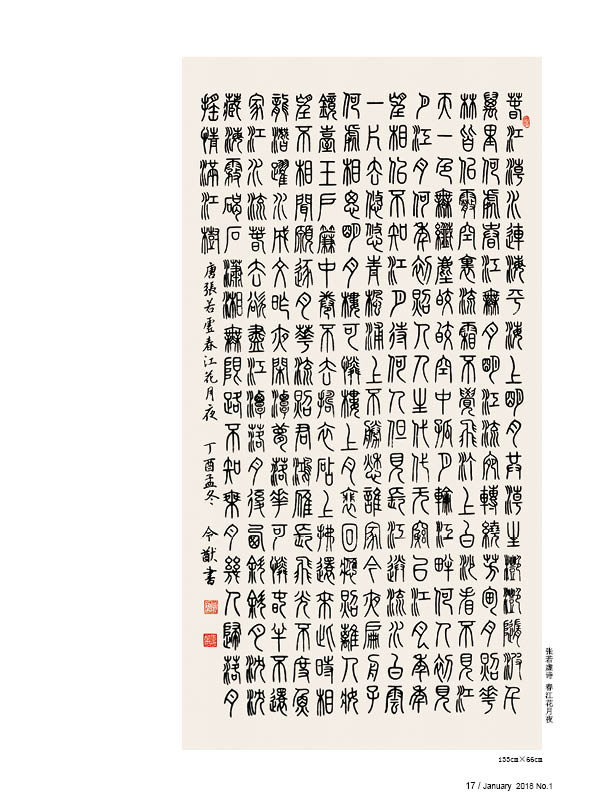 春江潮水連海平海上明月共潮生灩灩隨波千
萬里何處春江無月明江流宛轉繞芳甸月照花
林皆佀霰空裏流霜不覺飛汀上白沙看不見江
天一色無纖塵皎皎空中孤月輪江畔何人初見
月江月何年初照人人生代代无窮已江月年年
望相佀不知江月待何人但見長江送流水白雲
一片去悠悠青楓浦上不勝愁誰家今夜扁舟子
何處相思明月樓可憐樓上月裵回應照離人妝
鏡臺玉戶簾中卷不去擣衣砧上拂還來此時相
望不相聞願逐月華流照君鴻雁長飛光不度魚
龍潛躍水成文昨夜閑潭夢落華可憐春半不還
家江水流春去欲盡江潭落月復西斜斜月沈沈
藏海霧碣石瀟湘無限路不知乘月幾人歸落月
搖情滿江樹 唐張若虛春江花月夜 丁酉孟冬 令猷書
张若虚诗 春江花月夜
133cm×66cm
17 / January 2018 No.1